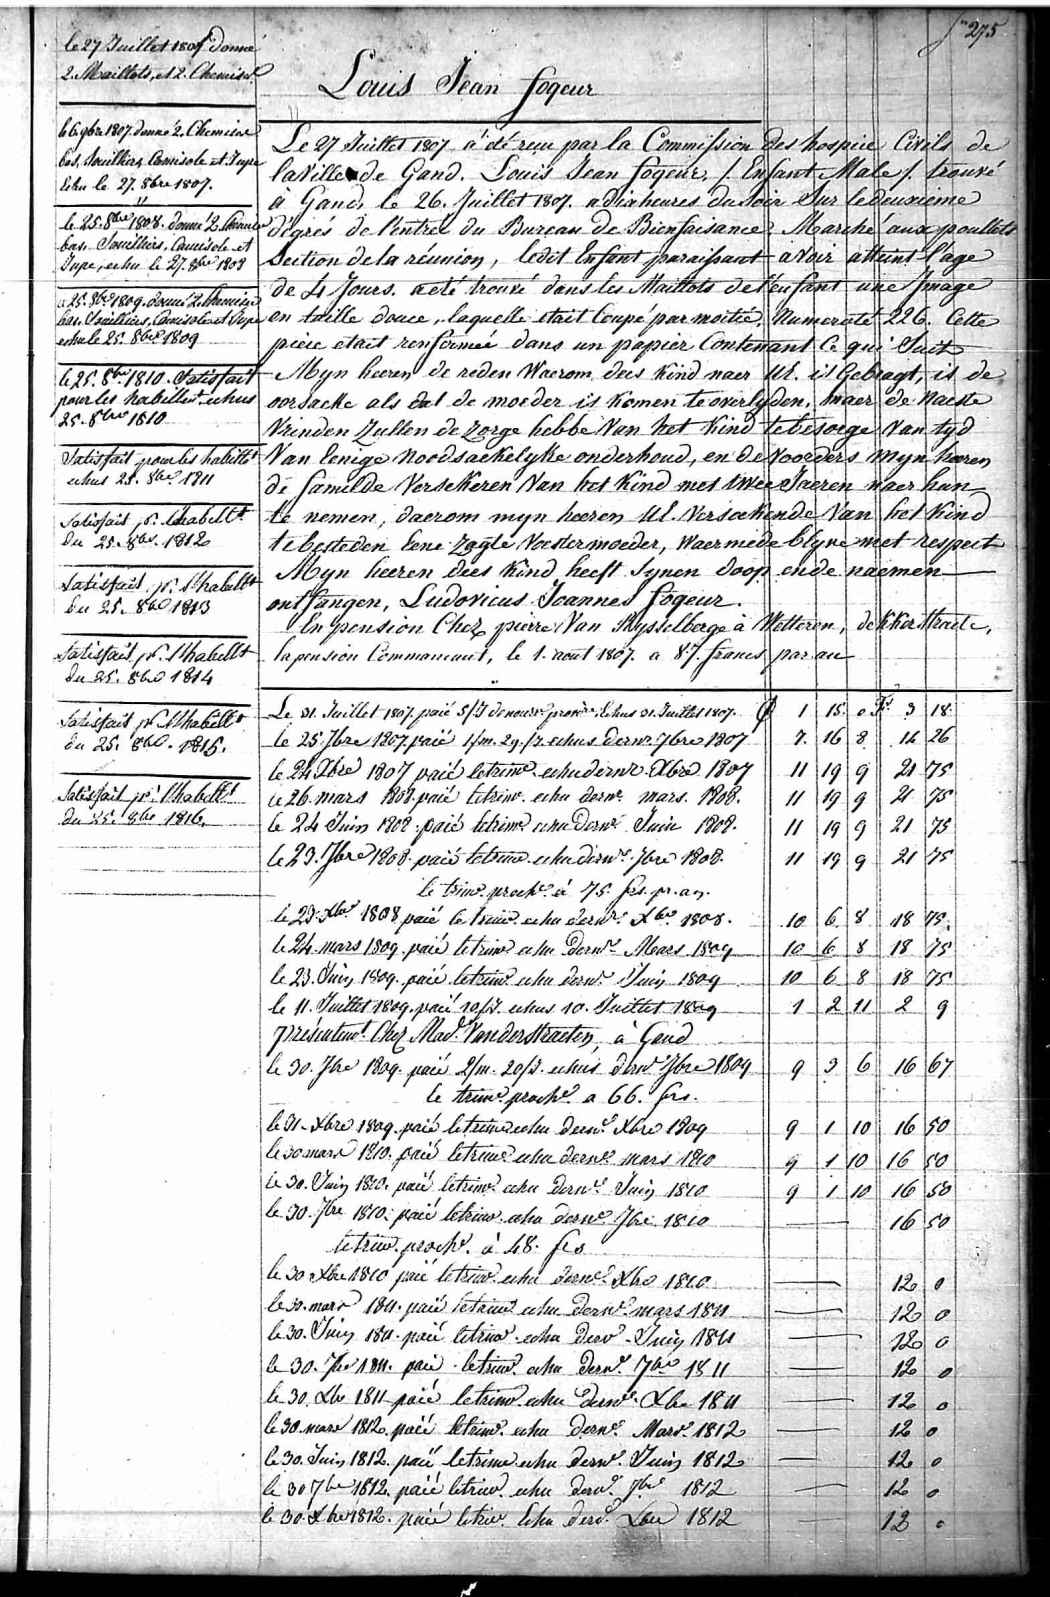 fo 275
Louis Jean fogeur
le 27 Juillet 1807 donné
2. Maillots, et 2. Chemises
le 6. 9bre 1807. donné 2. Chemises
bas, Souilliers, Camisole et Jupe
Echu le 27. 8bre 1807.
le 25. 8bre 1808. donné 2. Chemises
bas. Souilliers, Camisole et
Jupe, echu le 27. 8bre 1808
le 25. 8bre 1809. donné 2. Chemises
bas. Souilliers, Camisole et Jupe
echu le 25. 8bre 1809
le 25. 8bre 1810. Satisfait
pour les habillemt. echus
25. 8bre 1810
Satisfait pour les habillt
echus 25. 8bre 1811
Satisfait pr. l'habillt
du 25. 8bre. 1812
Satisfait pr. l'habillt
du 25. 8bre 1813
Satisfait pr. l'habillt
du 25. 8bre 1814
Satisfait pr. l'habillt
du 25. 8bre. 1815.
Satisfait pr. l'habillt
du 25. 8bre 1816.
Le 27 Juillet 1807 à été recu par la Commission des hospice Civils de
la Ville de Gand. Louis Jean fogeur. /. Enfant Male /. trouvé
à Gand, le 26. Juillet 1807. a dix heures du Soir Sur le deuxieme
dégrés de l'entrée du Bureau de Bienfaisance, Marché aux poullets
Section de la réunion, ledit Enfant paraissant avoir atteint l'age
de 4 Jours. a eté trouvé dans les Maillots de l'enfant une Image
en taille douce, laquelle était Coupé par moitié, Numeroté 226. Cette
piece etait renfermée dans un papier Contenant Ce qui Suit
Myn heeren de reden Waerom dees kind naer Ul. is Gebragt, is de
oorsacke als dat de moeder is komen te overlyden, maer de Naeste
Vrinden Zullen de Zorge hebbe Van het kind te besorge Van tyd
Van Eenige noodsaekelyke onderhoud, en de Voorders myn heeren
de familde Versekeren Van het kind met twee Jaeren naer hun
te nemen, daerom myn heeren Ul. Versoekende Van het kind
te besteden Eene Zagte Voestermoeder, Waermede blyve met respect
Myn heeren dees kind heeft Synen doop ende naemen
ontfangen, Ludovicus Joannes fogeur.
En pension Chez pierre Van Rysselberge à Wetteren, dekkerstraete,
la pension Commancent, le 1. aout 1807. a 87. francs par an
Le 31. Juillet 1807. paié 5/J de nour. provre. Echus 31 Juillet 1807. 1 15 0 Fs. 3 18
le 25. 7bre 1807. paié 1/m. 29./J. echus dernr. 7bre 1807 7. 16 8 14 26
le 24 Xbre 1807 paié le trime. echu dernr. Xbre 1807 11 19 9 21 75
le 26. mars 1808. paié le trime. echu dernr. mars. 1808. 11 19 9 21 75
le 24 Juin 1808. paié le trime. echu dernr. Juin 1808. 11 19 9 21 75
le 23. 7bre 1808. paié le trime. echu dernr. 7bre 1808. 11 19 9 21 75
le trime. proche. à 75. frs. pr. an.
le 23. Xbre 1808 paié le trime. echu dernr. Xbre 1808. 10 6 8 18 75.
le 24. mars 1809. paié le trime. echu dernr. Mars 1809 10 6 8 18 75
le 23. Juin 1809. paié le trime. echu dernr. Juin 1809 10 6 8 18 75
le 11. Juillet 1809. paié 10/J. echus 10. Juillet 1809 1 2 11 2 9
présentemt. Chez Made. Vanderstraeten, à Gand
le 30. 7bre 1809. paié 2/m. 20/J. echus dernr. 7bre 1809 9 3 6 16 67
le trime. proche. a 66. frs.
le 31. Xbre 1809. paié le trime echu dernr. Xbre 1809 9 1 10 16 50
le 30 mars 1810. paié le trime echu dernr. mars 1810 9 1 10 16 50
le 30. Juin 1810. paié le trime. echu dernr. Juin 1810 9 1 10 16 50
le 30. 7bre 1810. paié le trime. echu dernr. 7bre 1810 — 16 50
le trime. proche. à 48. frs
le 30 Xbre 1810 paié le trime. echu dernr. Xbre 1810 — 12 0
le 30. mars 1811. paié le trime. echu dernr. mars 1811 — 12 0
le 30. Juin 1811. paié le trime. echu dernr. Juin 1811 — 12 0
le 30. 7bre 1811. paié le trime. echu dernr. 7bre 1811 — 12 0
le 30. Xbre 1811 paié le trime. echu dernr. Xbre 1811 — 12 0
le 30. mars 1812. paié le trime. echu dernr. Mars. 1812 — 12 0
le 30. Juin 1812. paié le trime echu dernr. Juin 1812 — 12 0
le 30 7bre 1812. paié le trime. echu dernr. 7bre 1812 — 12 0
le 30. Xbre 1812. paié le trime. Echu dernr. Xbre 1812 — 12 0